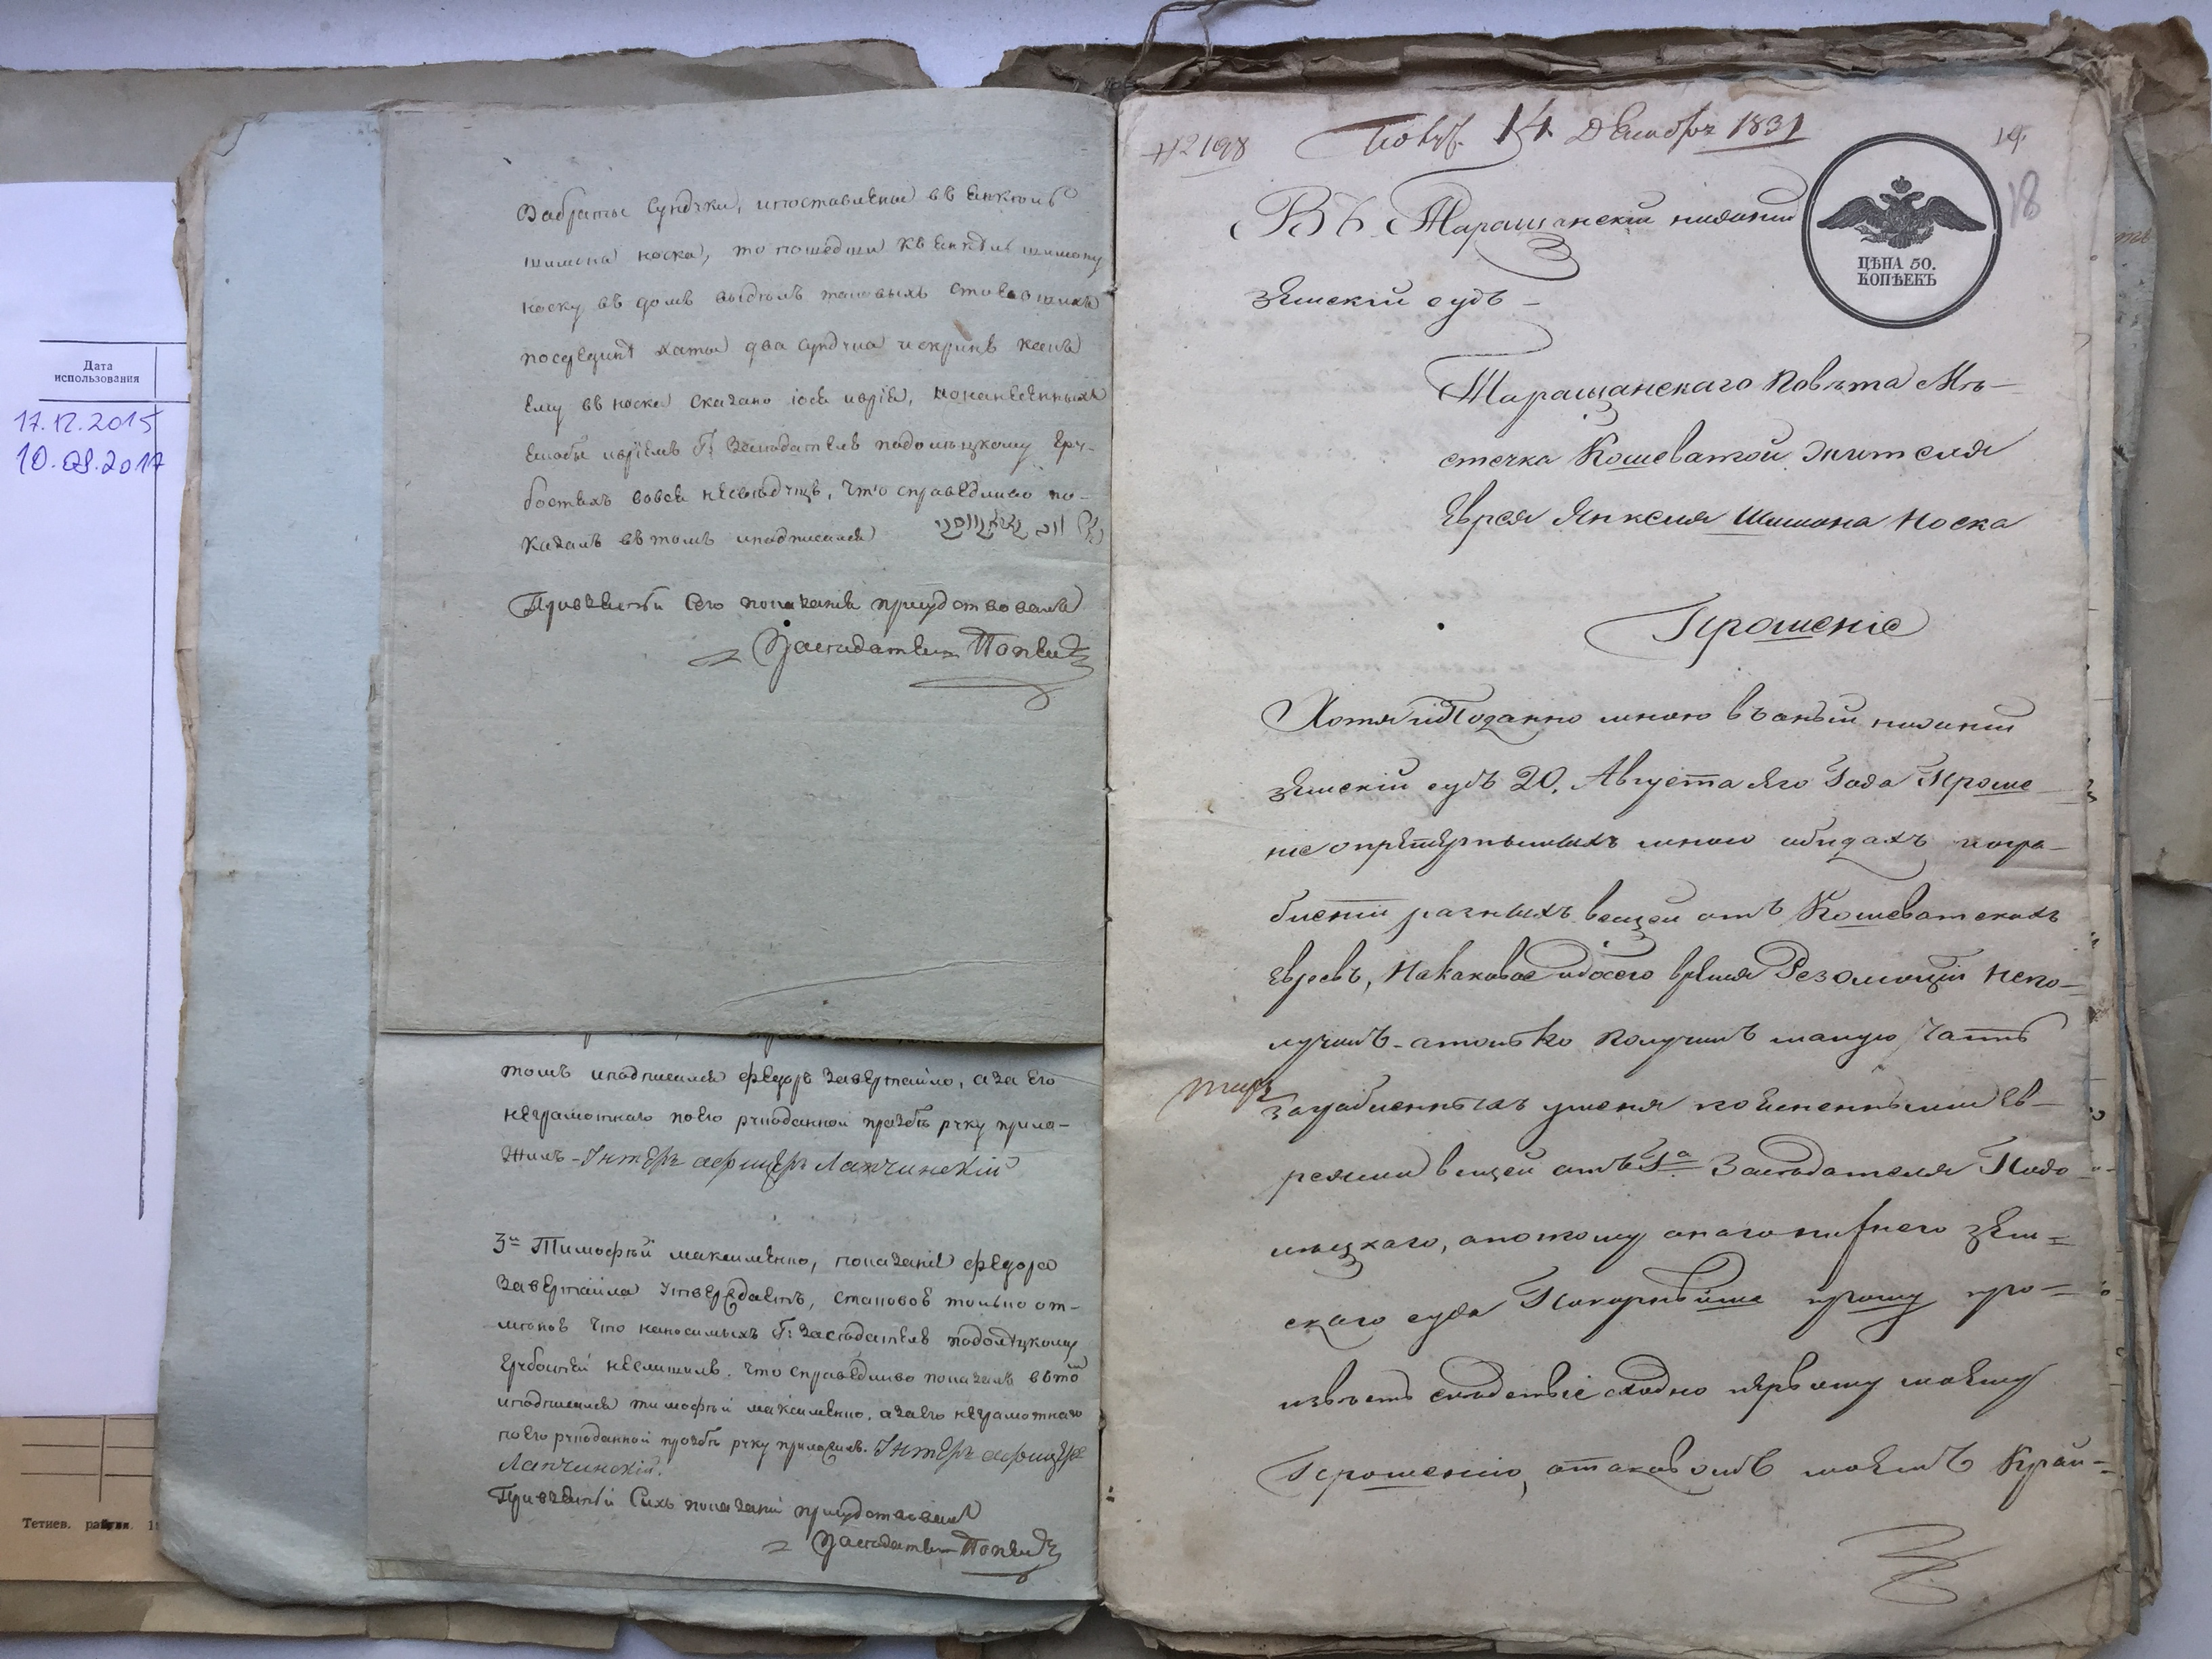 Дата
использования
17.12.2015
10.08.2017
Тетиев. район.
Забратые сундуки, и поставленые въ Янкеля
Шимона Носка, то пошедши къ Янкелю Шимону
Носку въ домъ виделъ таковыхъ стоявшихъ
посредине хаты два сундука и скриню
ему въ Носка сказано
Г: Заседателю Подолецкому гру-
бостяхъ вовся несведущъ, что справедливо по-
казалъ въ томъ и подписался
При взятьи сего показания присудствовалъ
Заседатель
томъ и подписался Федоръ Завертайло, а за его
неграмотнаго по его рукоданной прозбе руку прило-
жилъ - Унтеръ афицеръ Лапчинский
3й Тимофей Максименко, показание Федора
Завертайла утверждаетъ, с таковою только от-
меною что наносимыхъ Г: Заседателю Подолецкому
грубостей неслишилъ. что справедливо показалъ въ то
и подписался Тимофей Максименко, а за его неграмотнаго
по его рукоданной прозбе руку приложилъ. Унтеръ афицеръ
Лапчинский.
При взятьи сихъ показаний присудствовалъ
Заседатель
№ 2198
14 Декабря 1831
19
18
Въ Таращанский нижний
ЦѢНА 50.
КОПѢЕКЪ
земский судъ -
Таращанскаго Повѣта Мѣ-
стечка Кошеватой жителя
Еврея Янкеля Шимона Носка
Прошеніе
Хотя и Поданно мною въ оный нижний
земский судъ 20. Августа сего Года Проше
ніе о претерпѣнныхъ мною обидахъ и огра-
бленіи разныхъ вещей отъ Кошеватскихъ
Евреевъ, На каковое и до сего время Резолюции Непо-
лучилъ - а только Получилъ малую часть
заграбленныхъ у меня поясненными Ев-
реями вещей отъ Гна Заседателя Подо-
лецкаго, а потому онаго нижнего зем=
скаго суда Покорнейше прошу про=
извѣсть следствіе сходно первому моему
Прошению, о таковомъ моемъ Край-